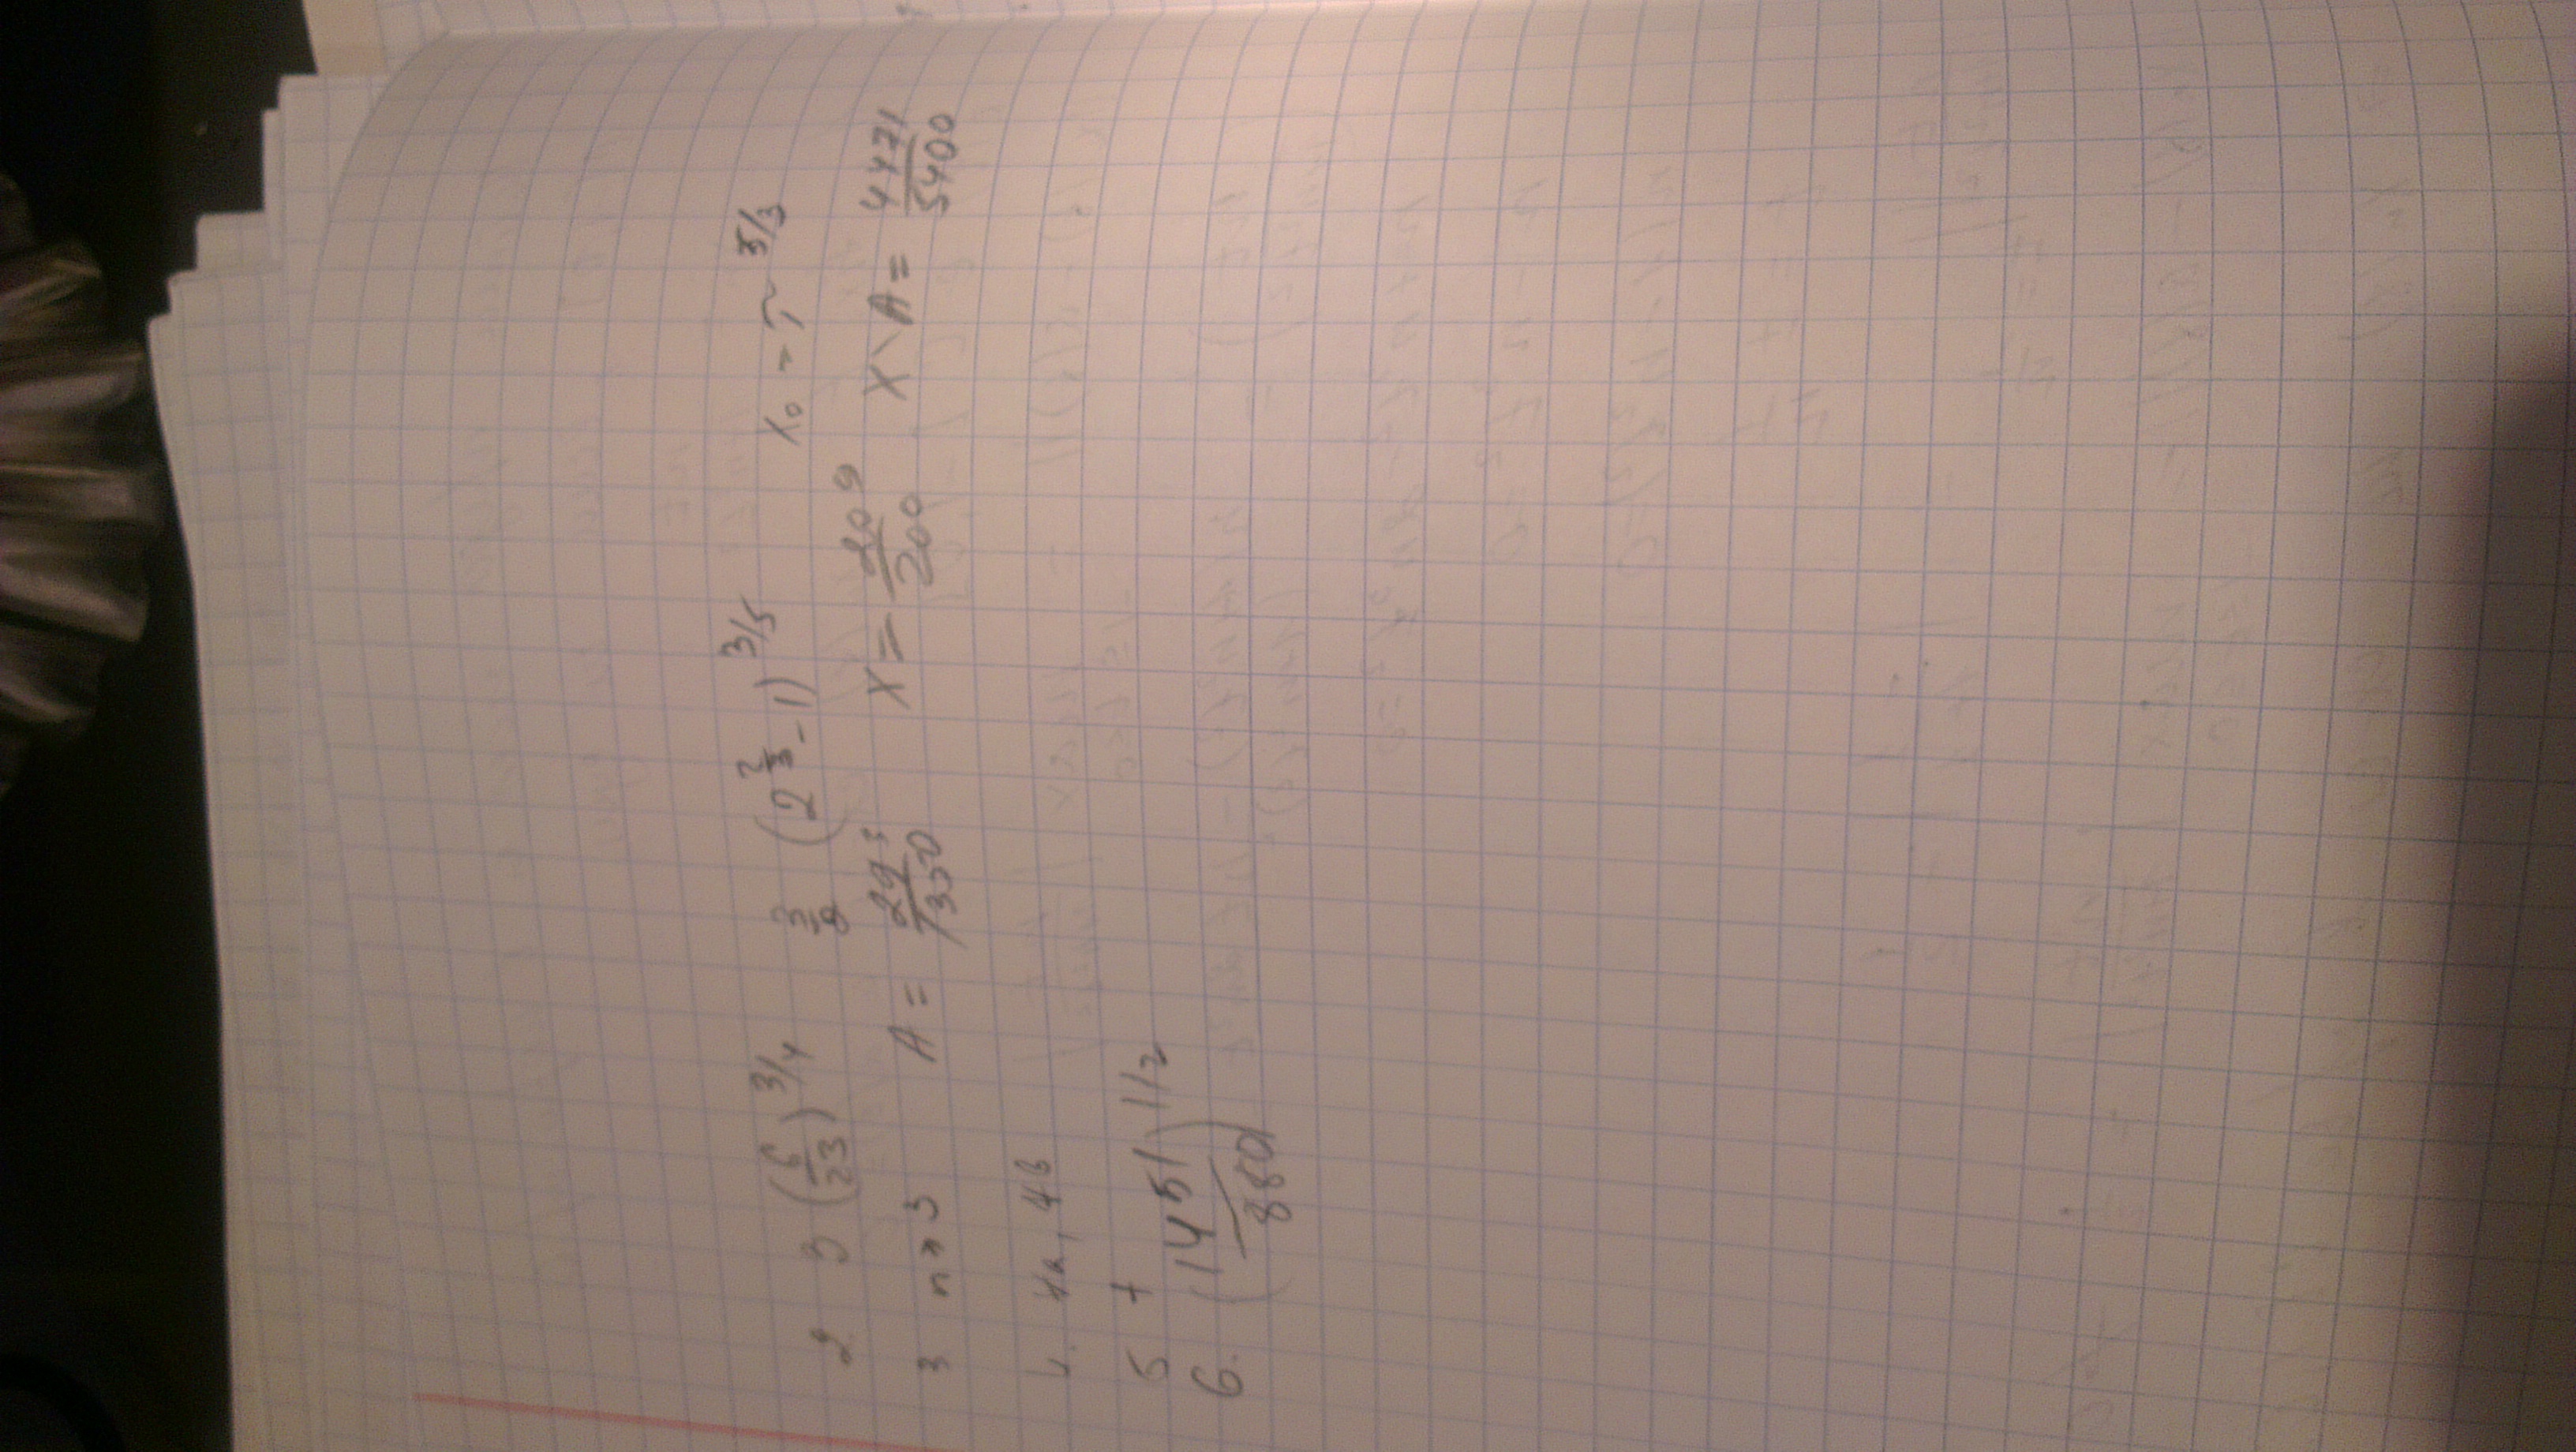 2 3 (6/23)^3/4 3/8 (2^2/3 - 1)^3/5 x₀ = π^5/3
3 n ≥ 3 A = 293/1350 X = 209/200 X \ A = 4471/5400
4. 4a, 4b
5 +
6. (1451/8880)^1/2